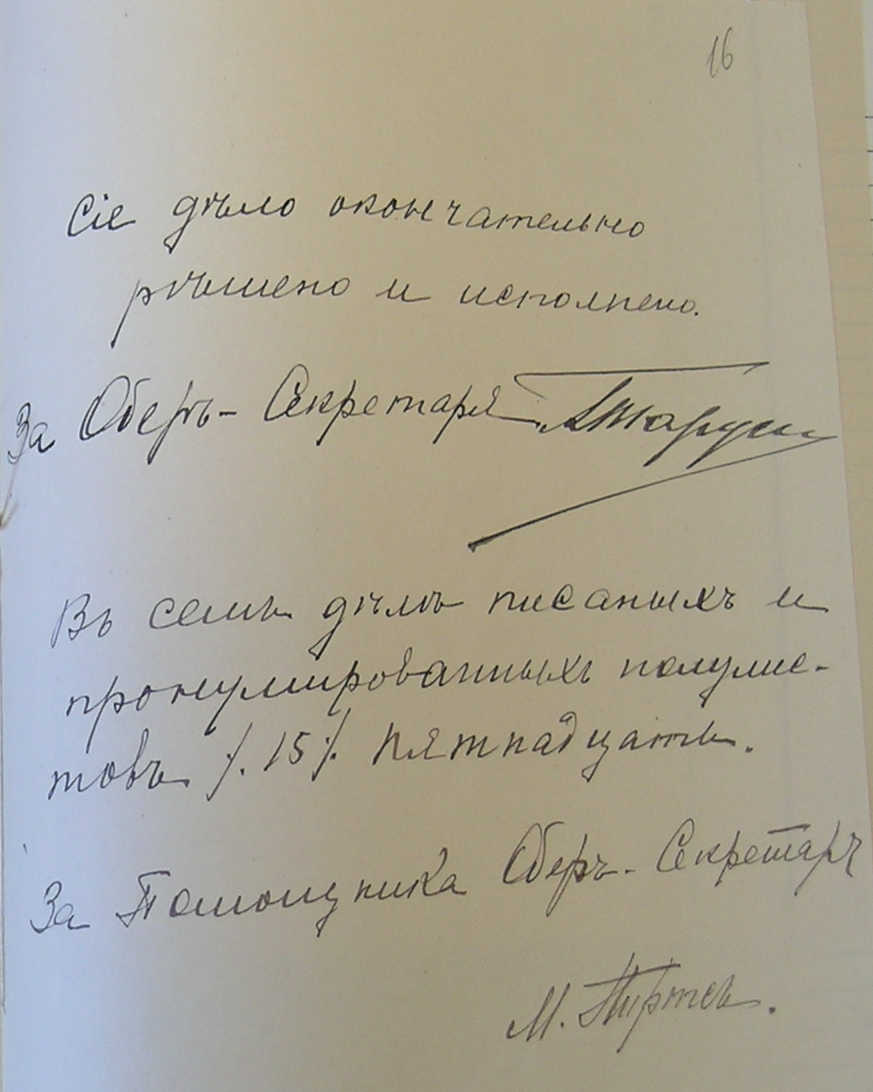 16
Сіе дѣло окончательно
рѣшено и исполнено.
За Оберъ-Секретаря
Въ семъ дѣлѣ писаныхъ и
пронумированныхъ полулис-
товъ /. 15 /. пятнадцать.
За Помощника Оберъ-Секретаря
М.